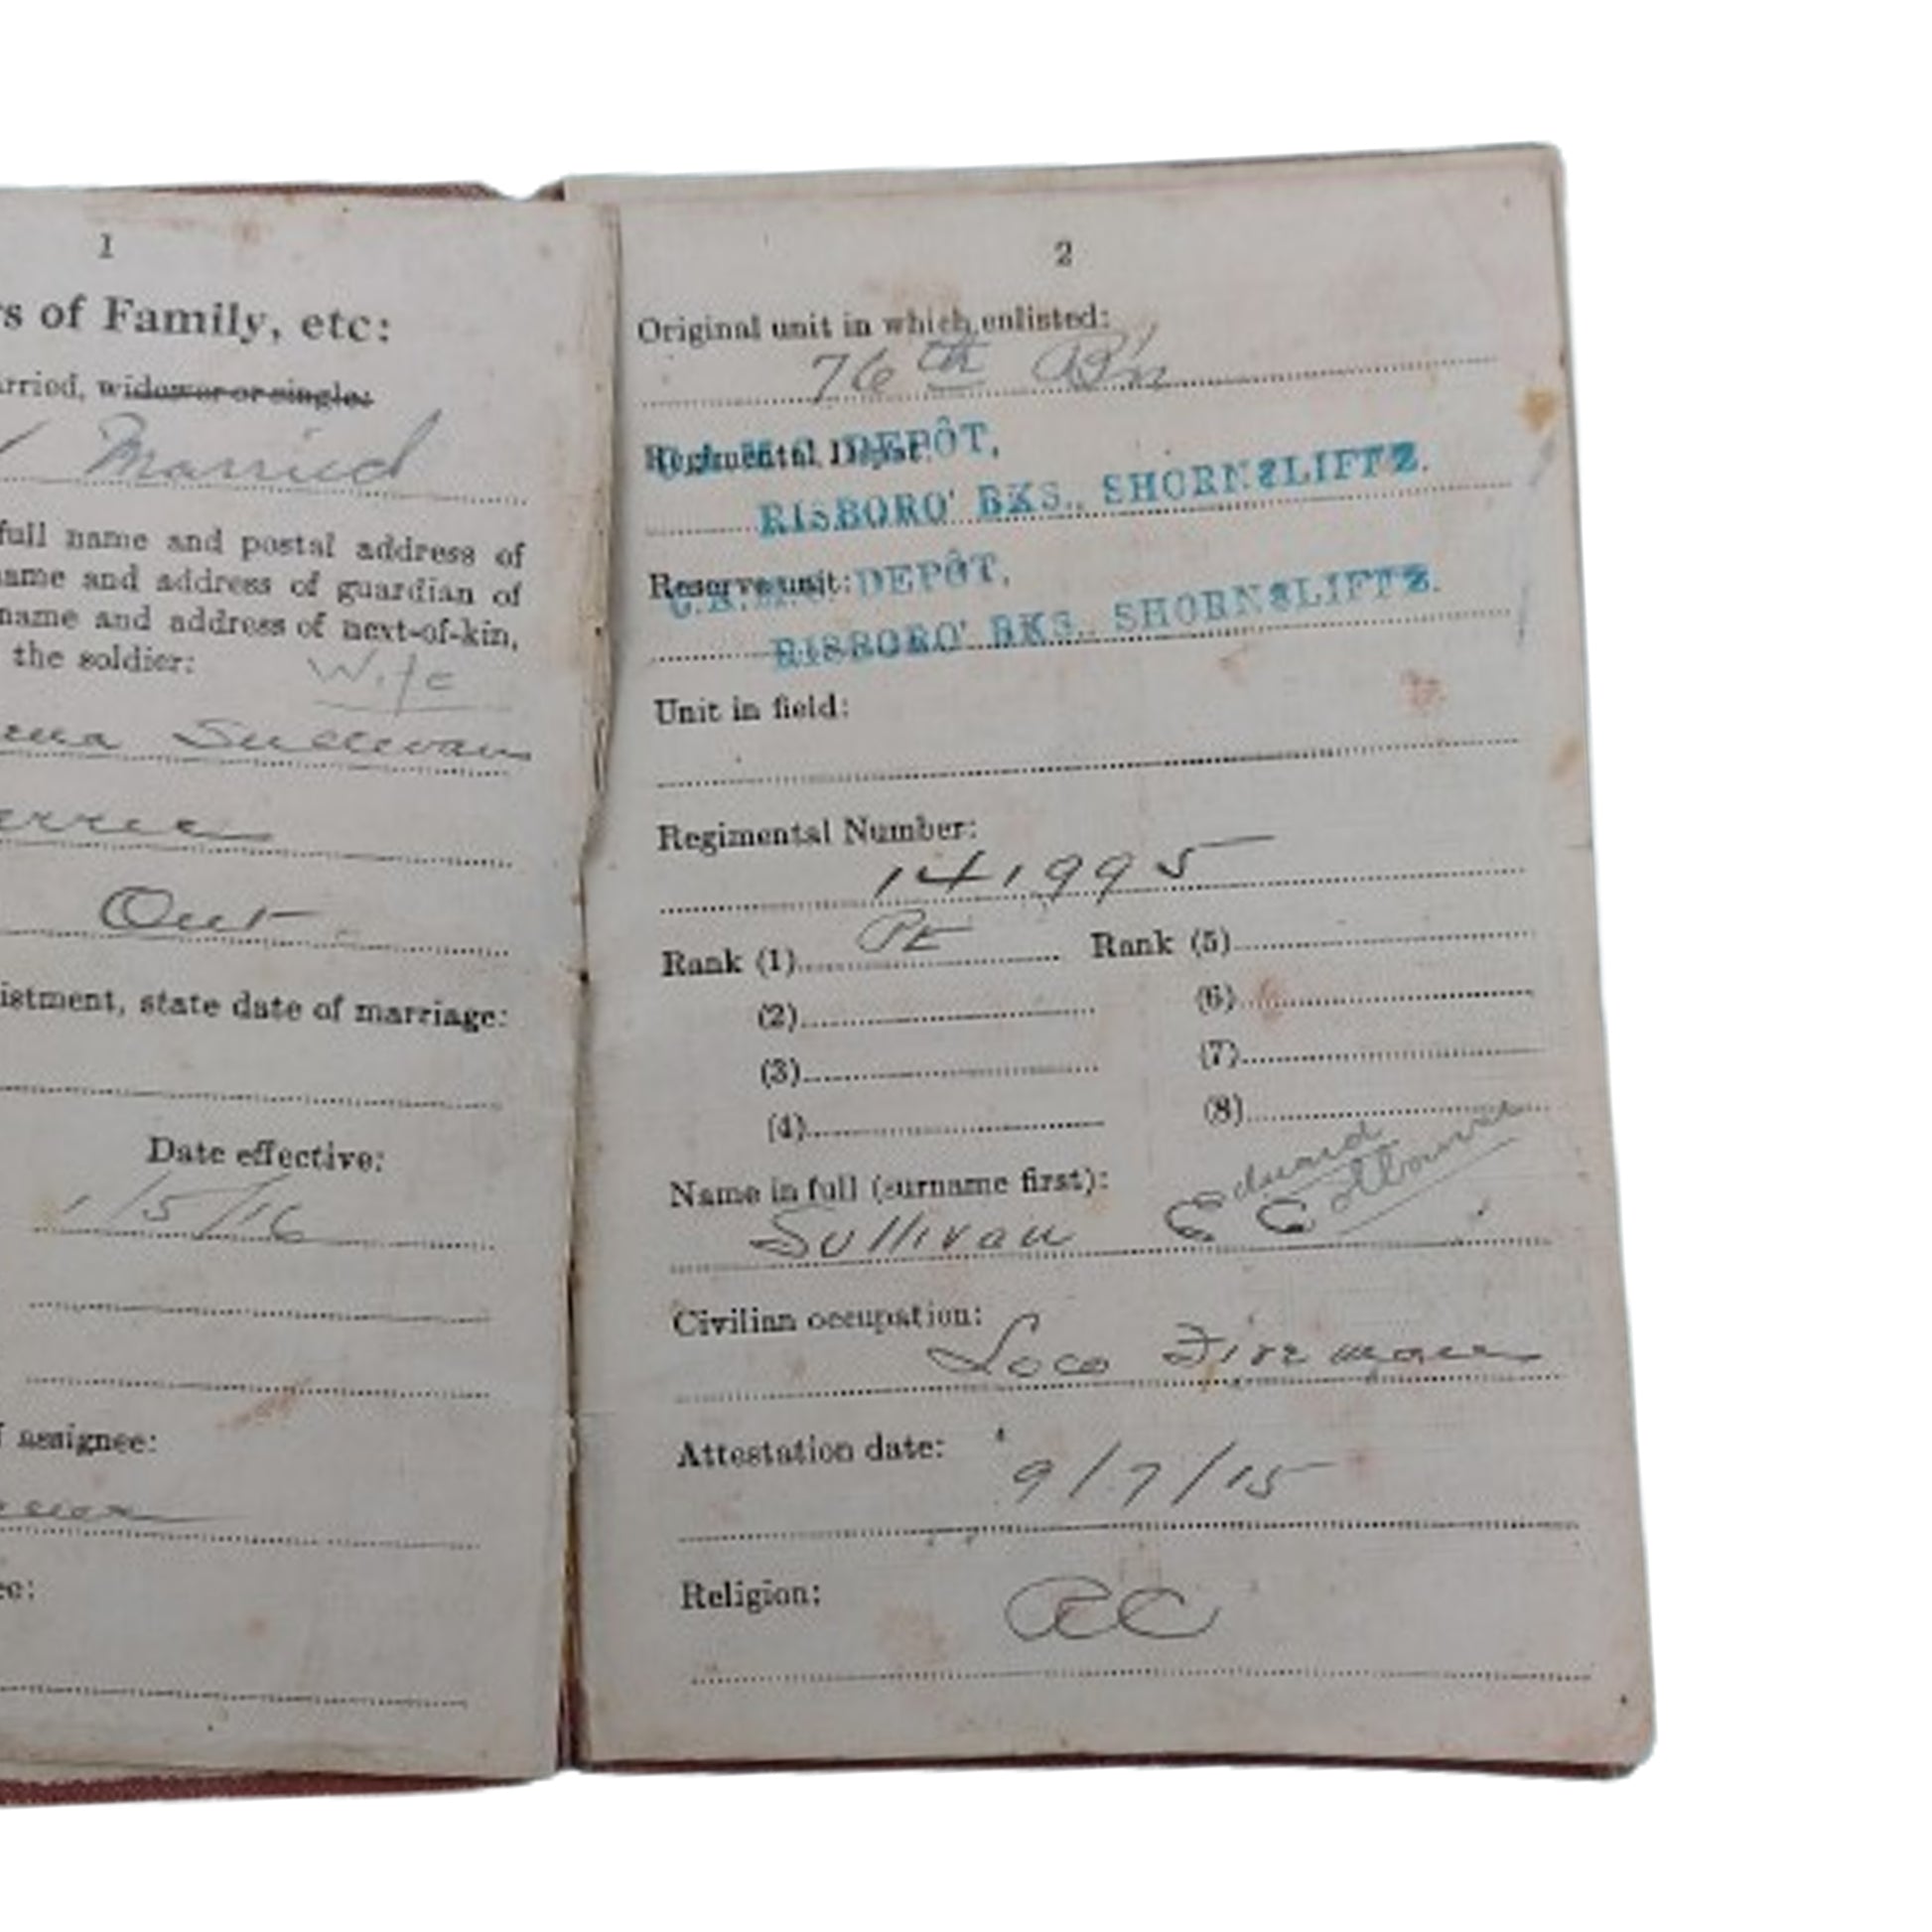 1
rs of Family, etc:
arried, widower or single:
Married
full name and postal address of
name and address of guardian of
name and address of next-of-kin,
the soldier:
Wife
Sullivan
Ont
istment, state date of marriage:
Date effective:
1/5/16
f assignee:
ee:
2
Original unit in which enlisted:
76th B'n
Regimental Depot:
DEPÔT,
RISBORO' BKS., SHORNCLIFFE.
Reserve unit:
C.A.M.C. DEPÔT,
RISBORO' BKS., SHORNCLIFFE.
Unit in field:
Regimental Number:
141995
Rank (1) Pt Rank (5)
(2) (6)
(3) (7)
(4) (8)
Name in full (surname first):
Edward
Sullivan E C
Civilian occupation:
Loco Fireman
Attestation date:
9/7/15
Religion:
RC